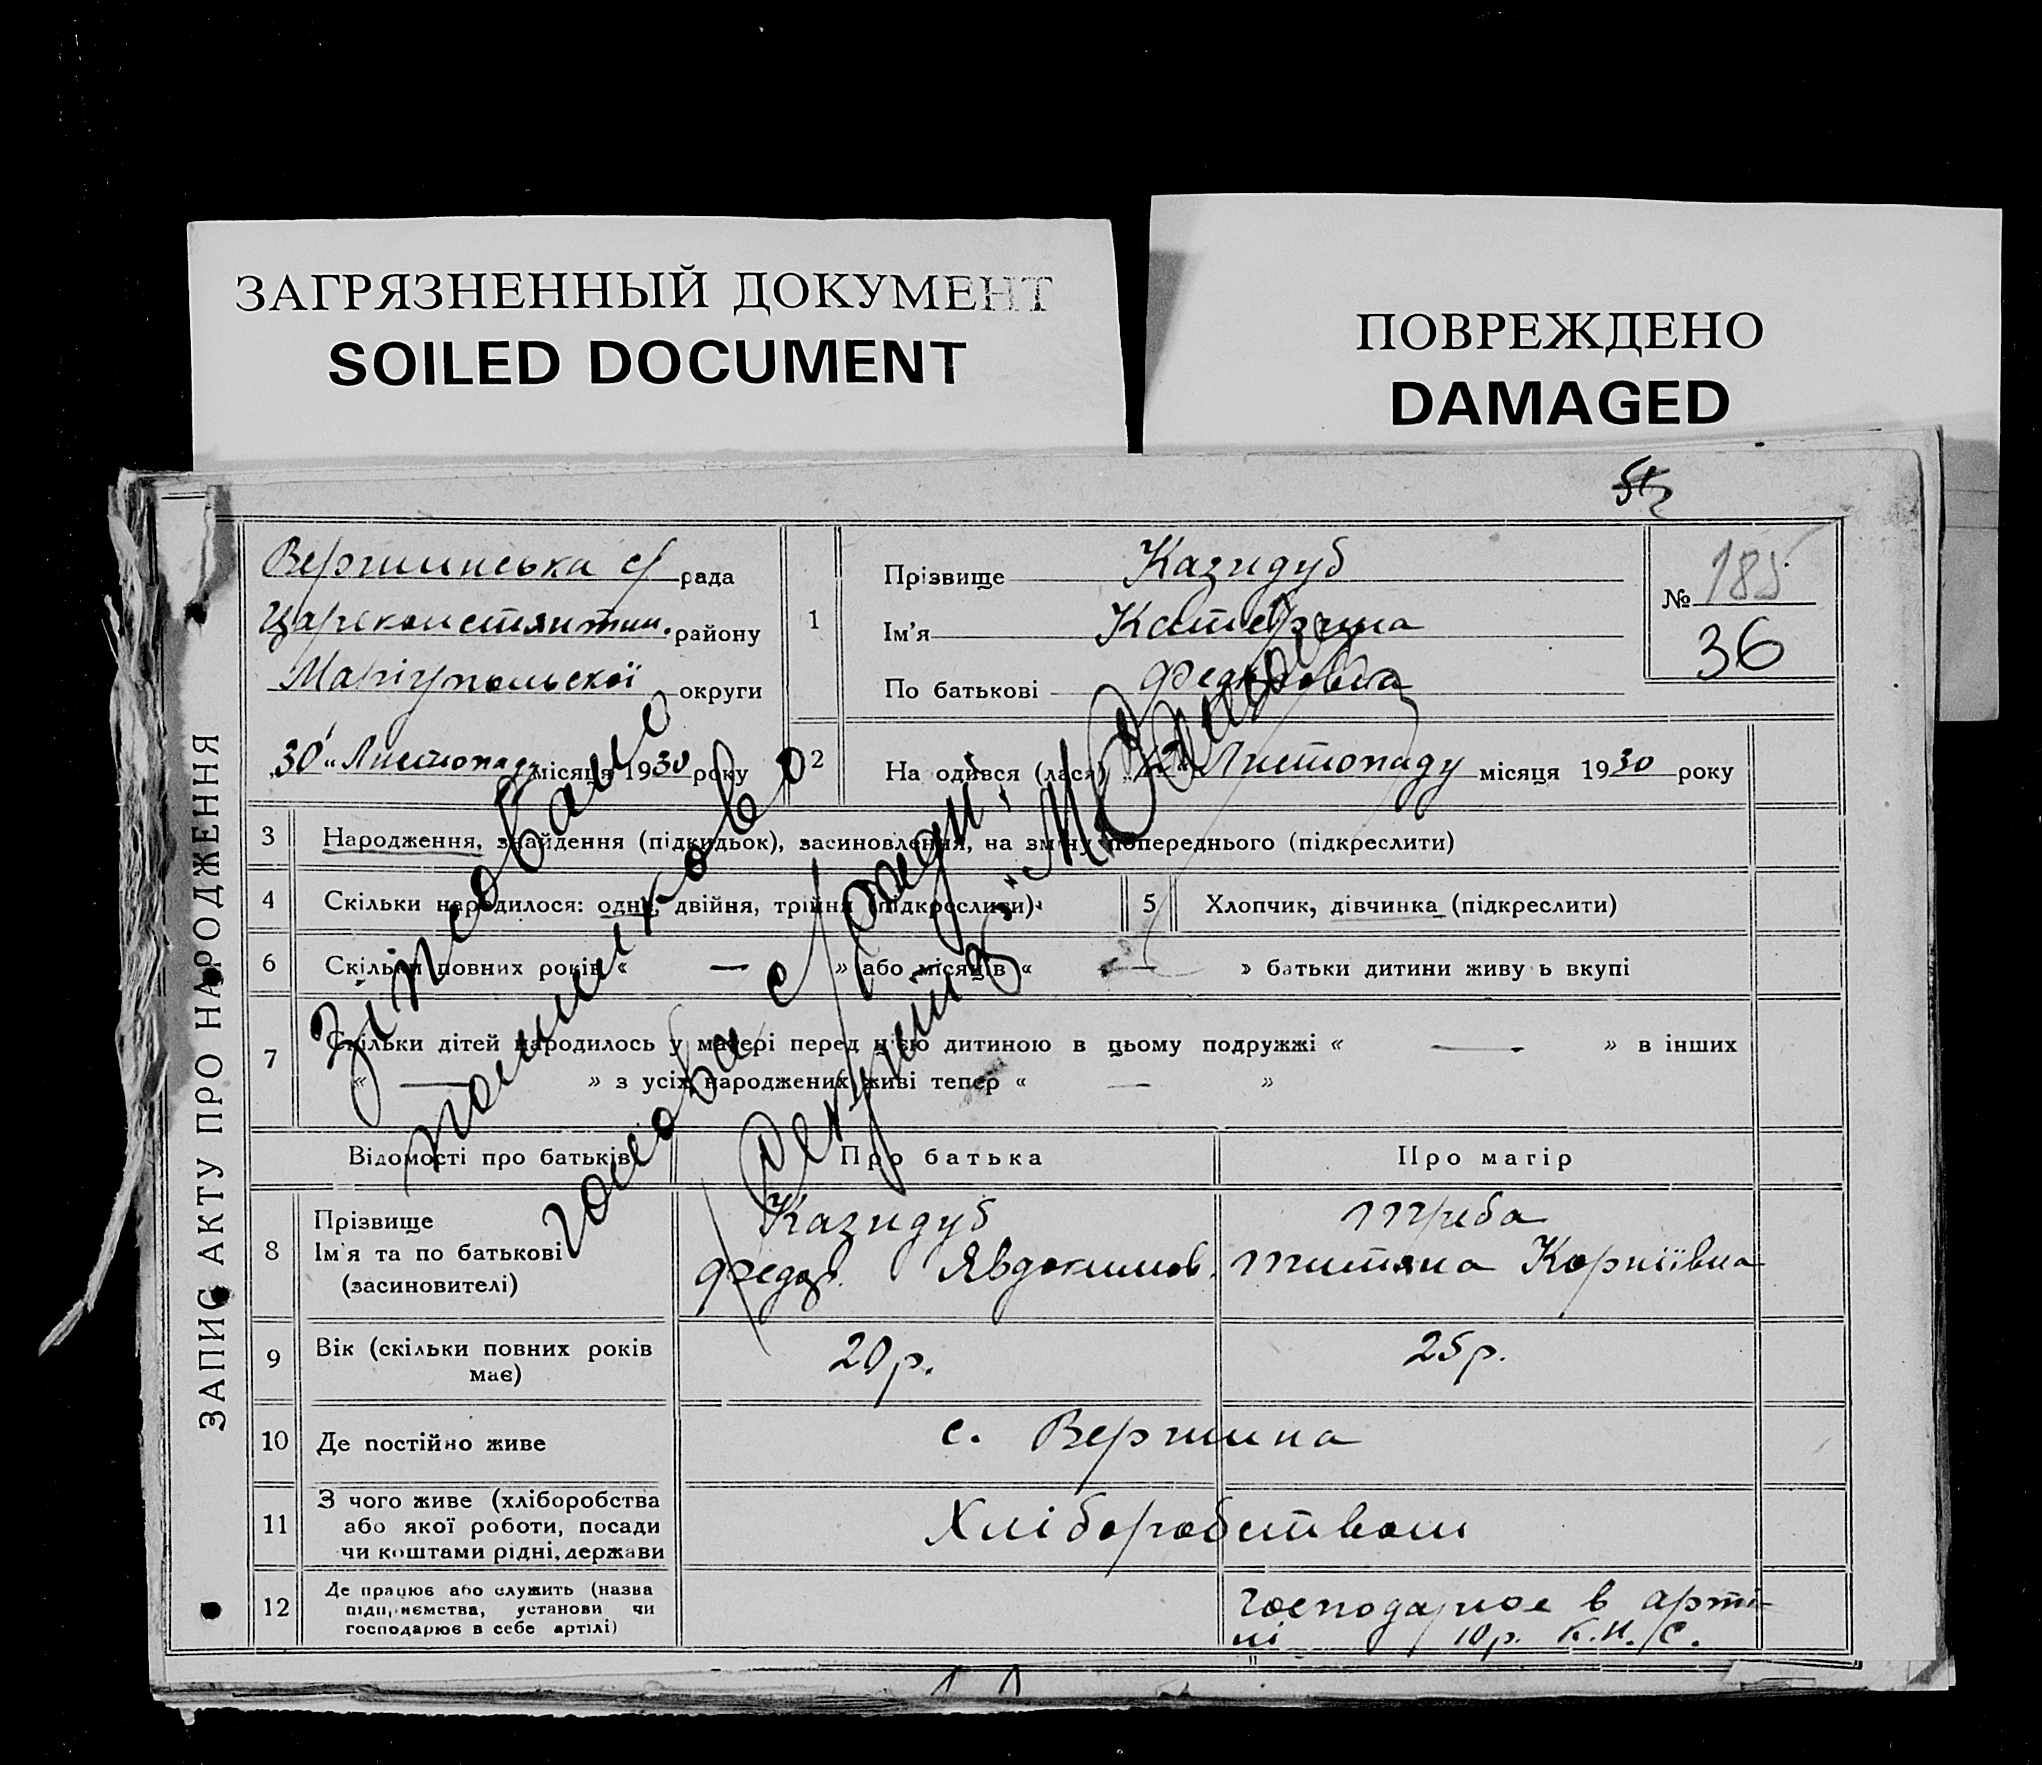 ЗАГРЯЗНЕННЫЙ ДОКУМЕНТ
SOILED DOCUMENT
ПОВРЕЖДЕНО
DAMAGED
ЗАПИС АКТУ ПРО НАРОДЖЕННЯ
Вершинська с/ рада
Царекомстянтин. району
Маріупольскої округи
30 „ Листопаду місяця 1930 року
1 Прізвище Казидуб
Ім'я Катерина
По батькові Федоровна
№ 185
36
2 На одився (лася) Листопаду місяця 1930 року
3 Народження, знайдення (підкидьок), засиновлення, на зміну попереднього (підкреслити)
4 Скільки народилося: одне, двійня, трійня (підкреслити)
5 Хлопчик, дівчинка (підкреслити)
6 Скільки повних років « — » або місяців « — » батьки дитини живу ь вкупі
7 Скільки дітей народилось у матері перед цією дитиною в цьому подружжі « — » в інших
« — » з усіх народжених живі тепер « — »
Зіпсовано
помилково
голова с/ради
Секретар
Відомості про батьків Про батька Про матір
8 Прізвище
Ім'я та по батькові
(засиновителі)
Казидуб
Федор. Явдокимов.
Треба
Титяна Корніївна
9 Вік (скільки повних років
має)
20р. 25р.
10 Де постійно живе с. Вершина
11 З чого живе (хліборобства
або якої роботи, посади
чи коштами рідні, держави
Хліборобством
12 Де працює або служить (назва
підприємства, установи чи
господарює в себе артілі)
господарює в арті-
лі 10р. К.Н.С.